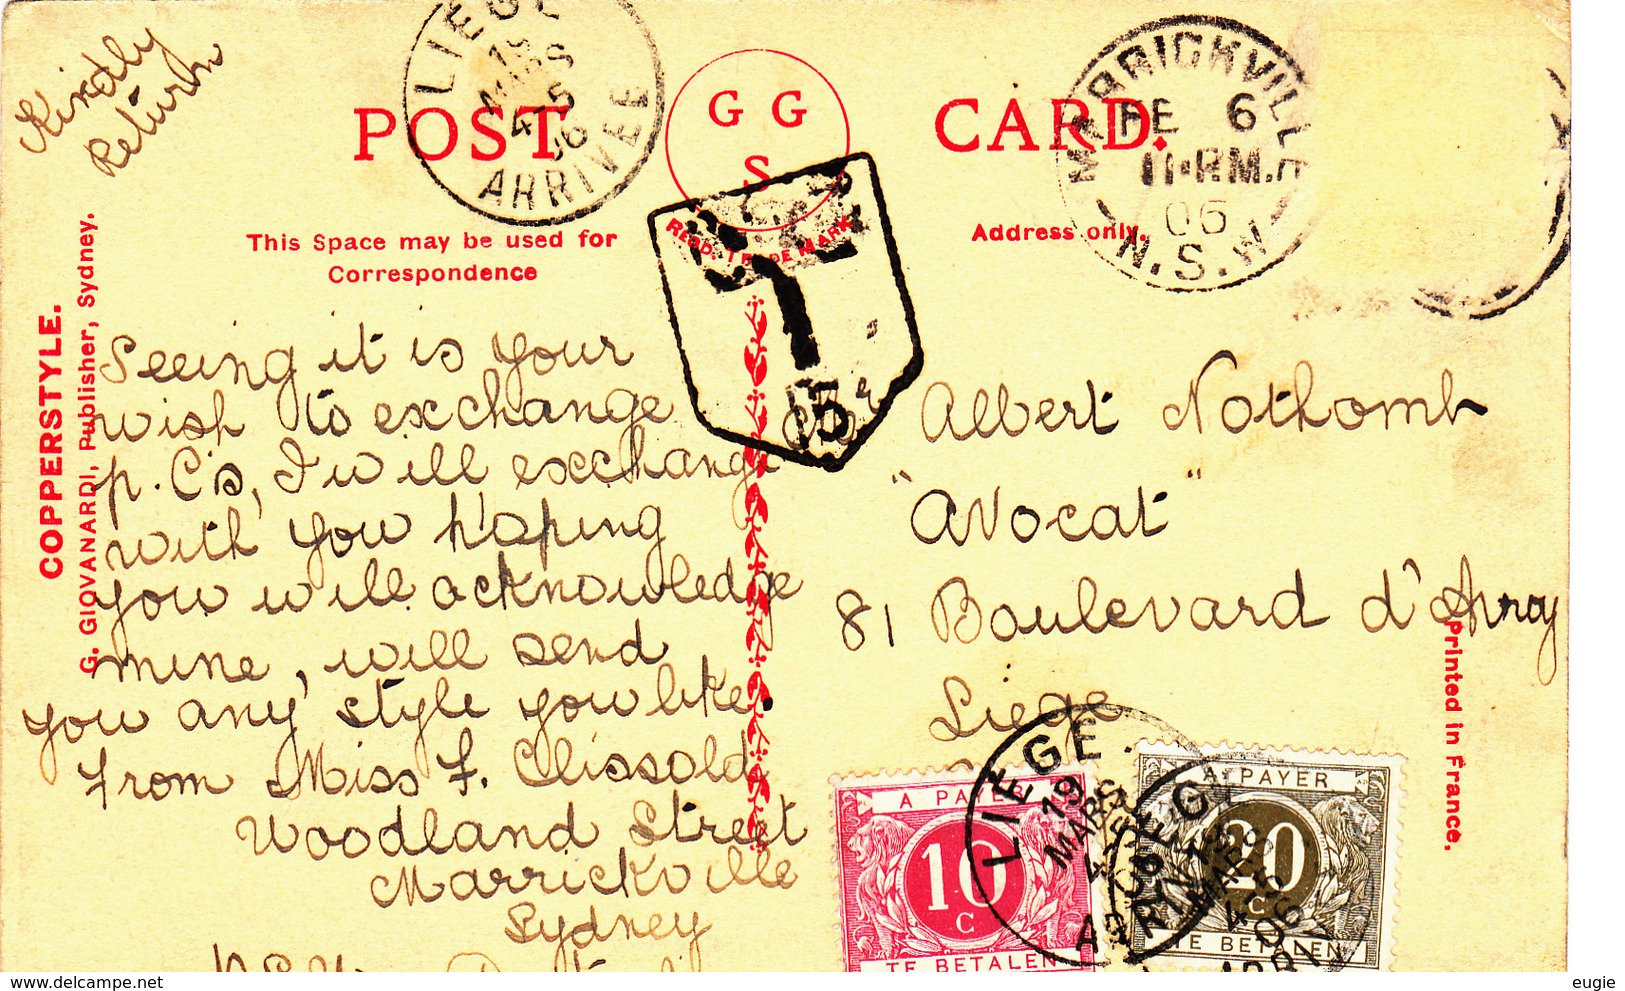 Kindly
Return
LIEGE
19
MARS
4-5
06
ARRIVEE
POST CARD.
G G
S
REGD. TRADE MARK
MARRICKVILLE
FE 6
11·P.M.
06
N.S.W
This Space may be used for
Correspondence
Address only.
T
15
COPPERSTYLE.
G. GIOVANARDI, Publisher, Sydney.
Seeing it is your
wish to exchange
p. C's, I will exchange
with you hoping
you will acknowledge
mine, will send
you any style you like.
From Miss F. Clissold
Woodland Street
Marrickville
Sydney
Albert Nothomb
"Avocat"
81 Boulevard d'Avroy
Liége
Printed in France.
A PAYER
10
C
TE BETALEN
A PAYER
20
C
TE BETALEN
LIEGE
19
MARS
4-5
eugie